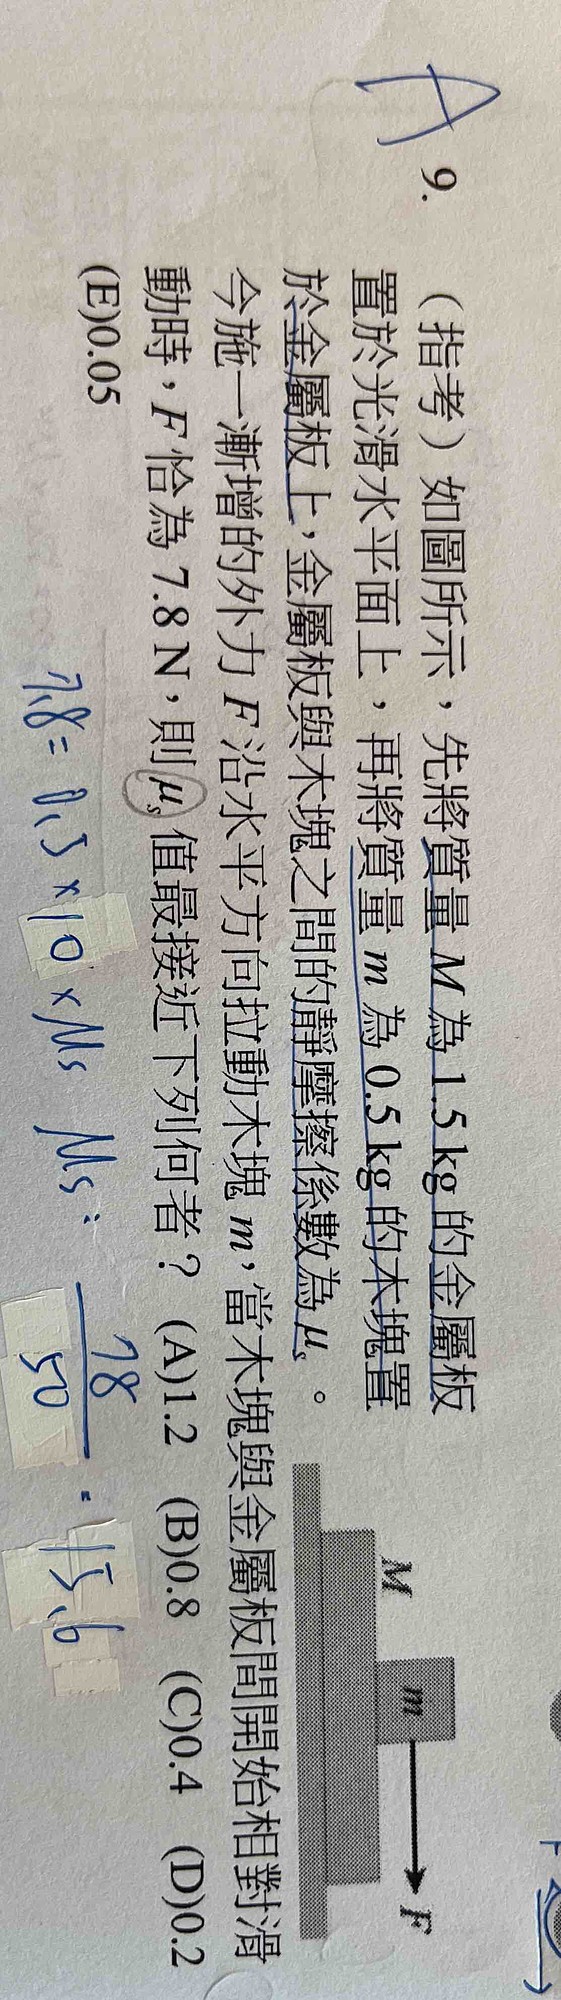 A
9.
（指考）如圖所示，先將質量 M 為 1.5 kg 的金屬板
置於光滑水平面上，再將質量 m 為 0.5 kg 的木塊置
於金屬板上，金屬板與木塊之間的靜摩擦係數為 μs。
今施一漸增的外力 F 沿水平方向拉動木塊 m，當木塊與金屬板間開始相對滑
動時，F 恰為 7.8 N，則 μs 值最接近下列何者？ (A)1.2 (B)0.8 (C)0.4 (D)0.2
(E)0.05
M
m
F
7.8 = 0.5 × 10 × μs μs = 78
50